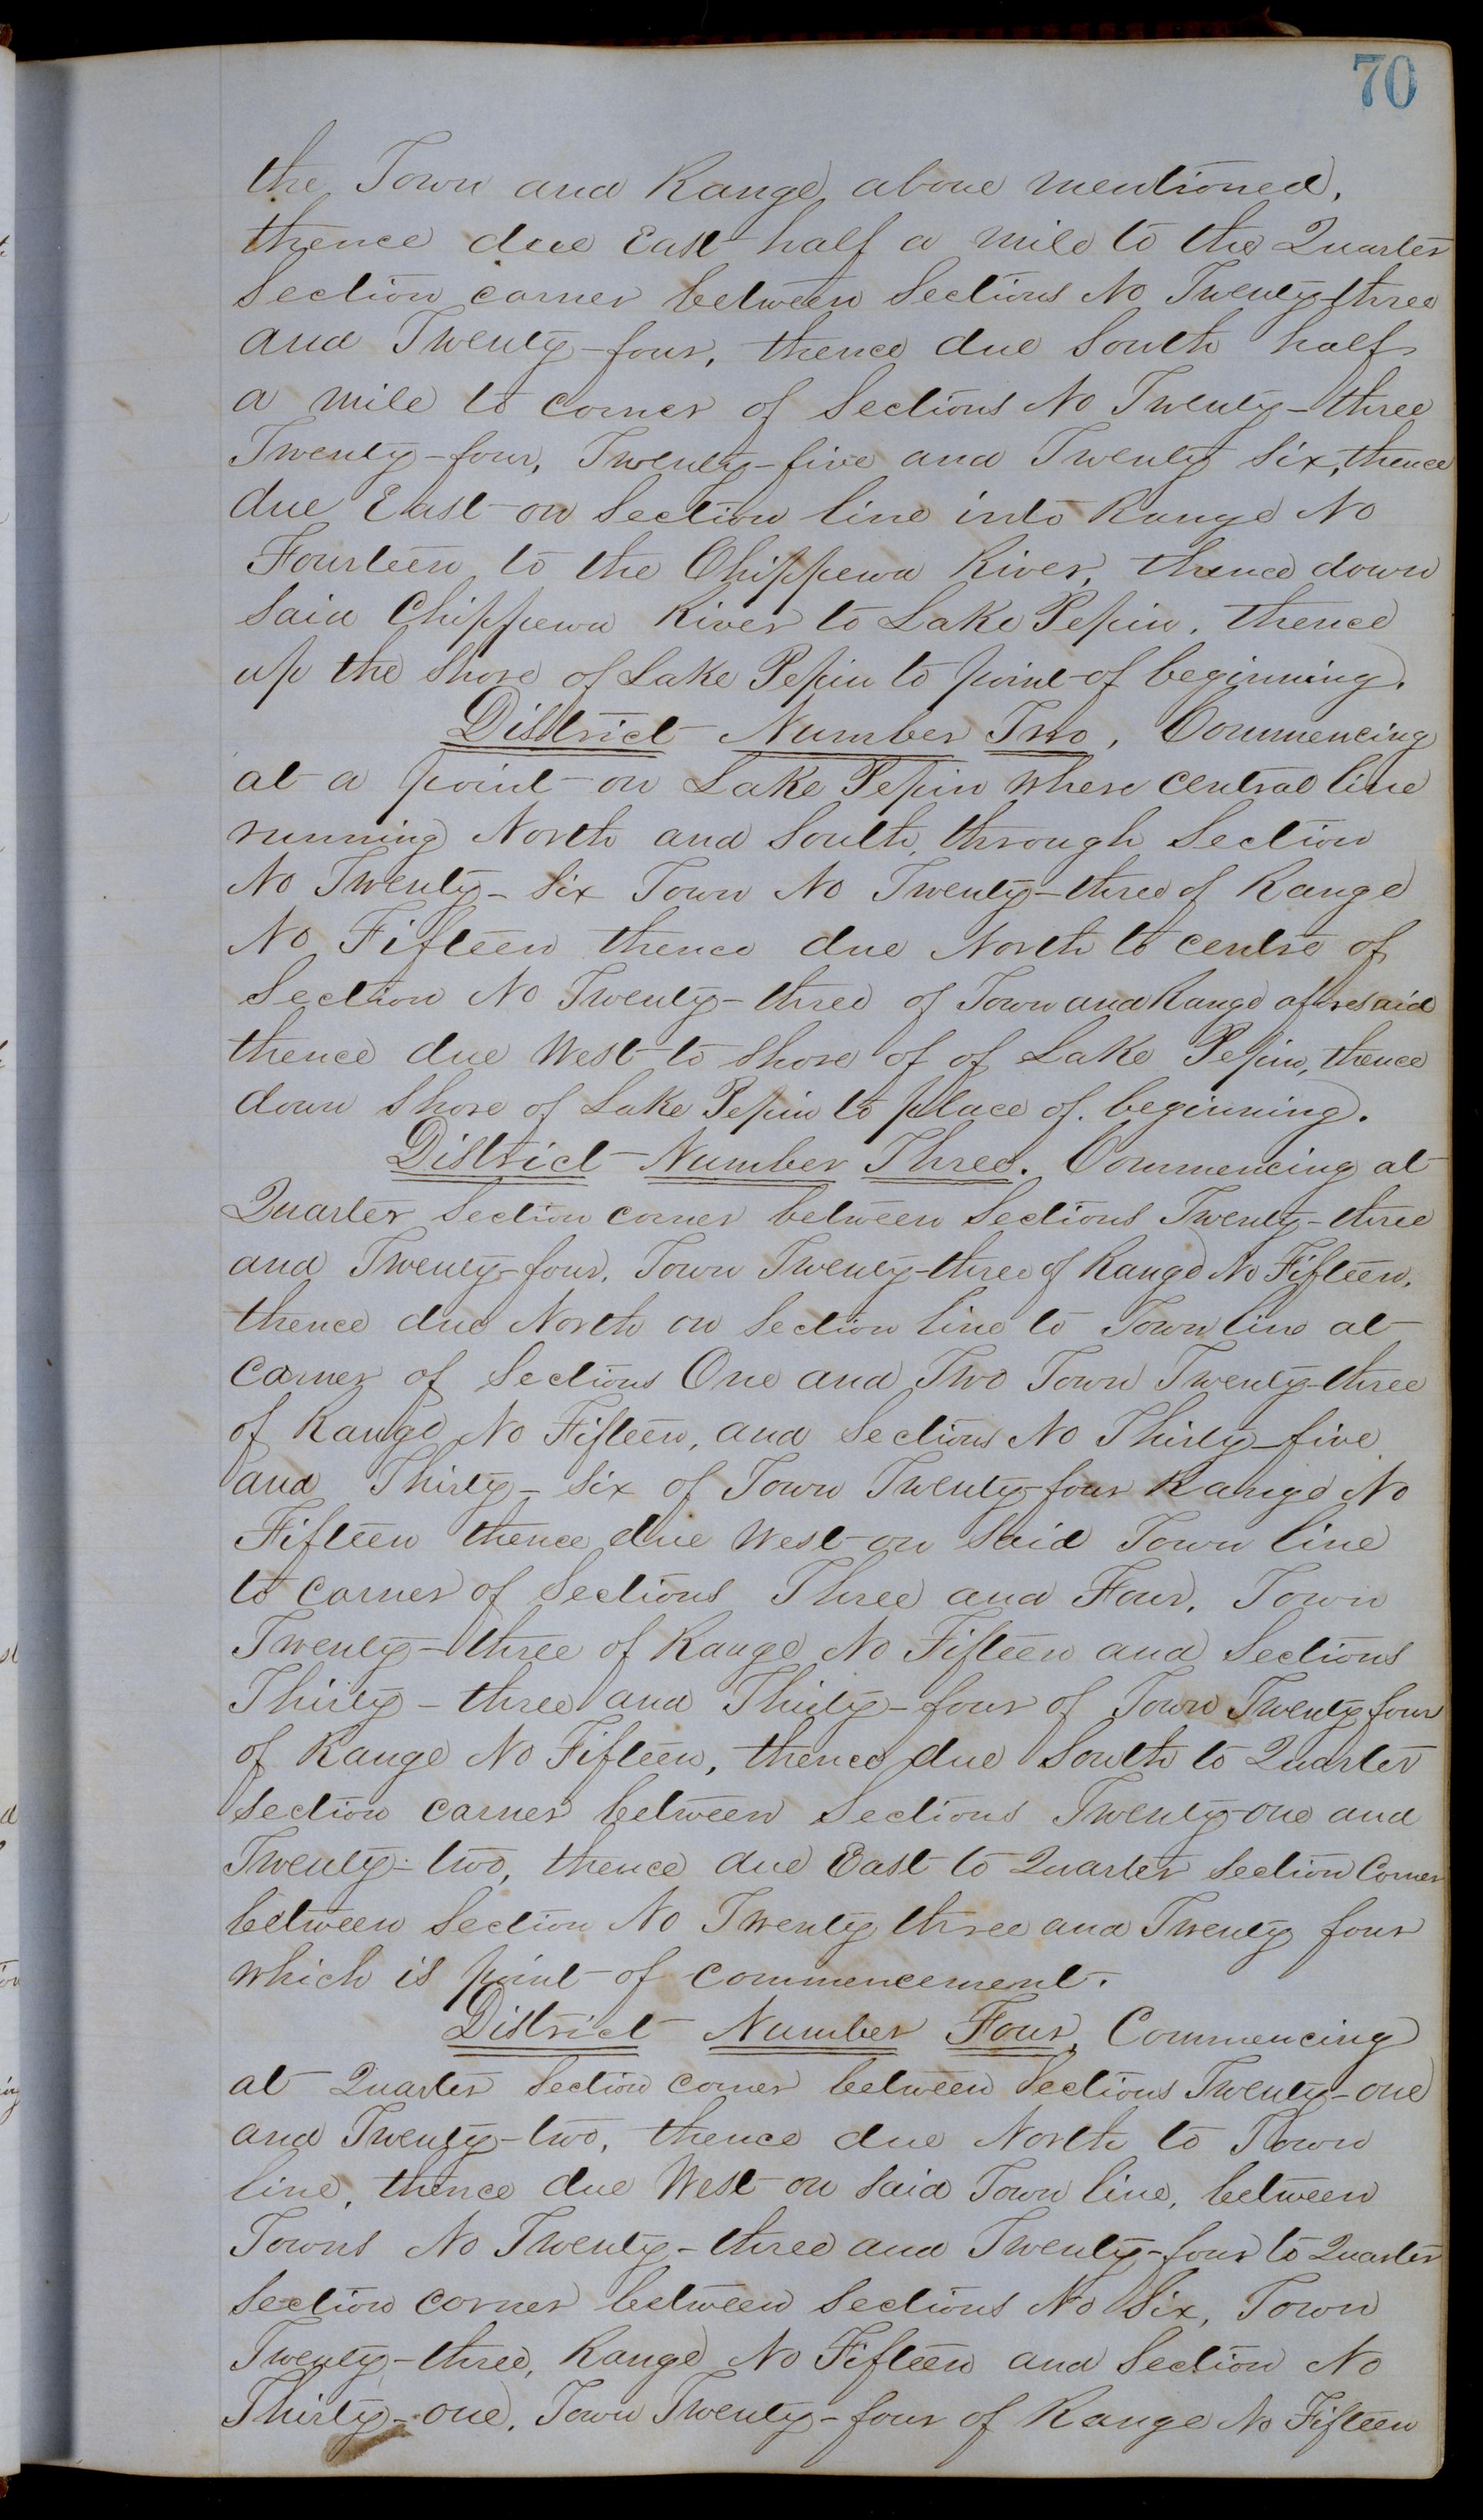 70
the Town and Range above mentioned,
thence due East half a mile to the Quarter
Section corner between Sections No Twenty-three
and Twenty-four, thence due South half
a mile to corner of Sections No Twenty-three
Twenty-four, Twenty-five and Twenty six, thence
due East on Section line into Range No
Fourteen to the Chippewa River, thence down
said Chippewa River to Lake Pepin, thence
up the shore of Lake Pepin to point of beginning.
District Number Two, Commencing
at a point on Lake Pepin where central line
running North and South, through Section
No Twenty-Six Town No Twenty-three of Range
No Fifteen thence due North to centre of
Section No Twenty-three of Town and Range aforesaid
thence due West to shore of of Lake Pepin, thence
down shore of Lake Pepin to place of beginning.
District Number Three. Commencing at
Quarter Section corner between Sections Twenty-three
and Twenty-four, Town Twenty-three of Range No Fifteen,
thence due North on Section line to Town line at
corner of Sections One and Two Town Twenty-three
of Range No Fifteen, and Sections No Thirty-five
and Thirty-six of Town Twenty-four Range No
Fifteen thence due West on said Town line
to corner of Sections Three and Four, Town
Twenty-three of Range No Fifteen and Sections
Thirty-three and Thirty-four of Town Twenty four
of Range No Fifteen, thence due South to Quarter
Section corner between Sections Twenty-one and
Twenty-two, thence due East to Quarter Section Corner
between Section No Twenty three and Twenty four
which is point of commencement.
District Number Four, Commencing
at Quarter Section corner between Sections Twenty-one
and Twenty-two, thence due North to Town
line, thence due West on said Town line, between
Towns No Twenty-three and Twenty-four to Quarter
Section corner between Sections No Six, Town
Twenty-three, Range No Fifteen and Section No
Thirty-one, Town Twenty-four of Range No Fifteen